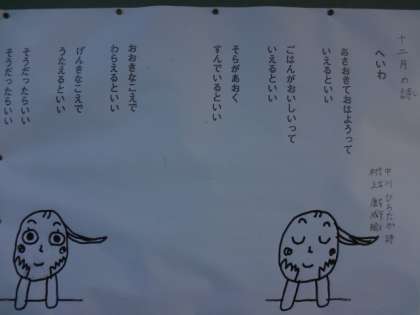 十二月の詩
へいわ
中川ひろたか 詩
村上康成 絵
あさおきておはようって
いえるといい
ごはんがおいしいって
いえるといい
そらがあおく
すんでいるといい
おおきなこえで
わらえるといい
げんきなこえで
うたえるといい
そうだったらいい
そうだったらいい